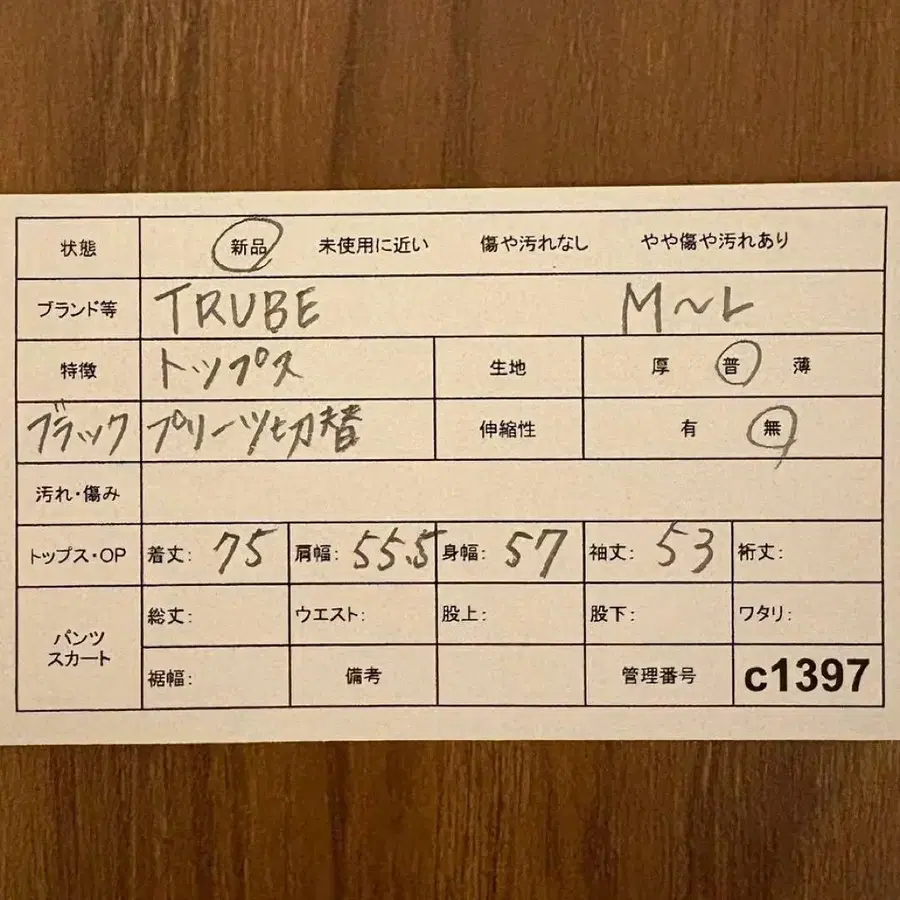 状態 新品 未使用に近い 傷や汚れなし やや傷や汚れあり
ブランド等 TRUBE M〜L
特徴 トップス 生地 厚 普 薄
ブラック プリーツ切替 伸縮性 有 無
汚れ・傷み
トップス・OP 着丈: 75 肩幅: 55.5 身幅: 57 袖丈: 53 裄丈:
パンツ スカート 総丈: ウエスト: 股上: 股下: ワタリ:
裾幅: 備考 管理番号 c1397